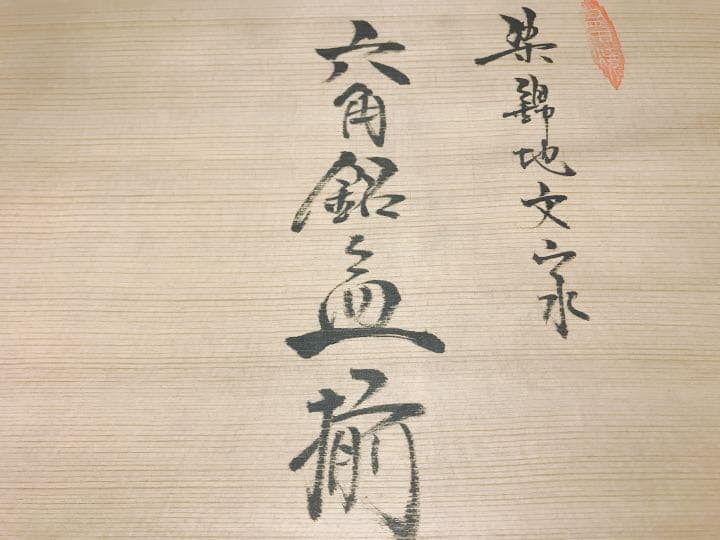 染錦地文
六角銘々皿揃